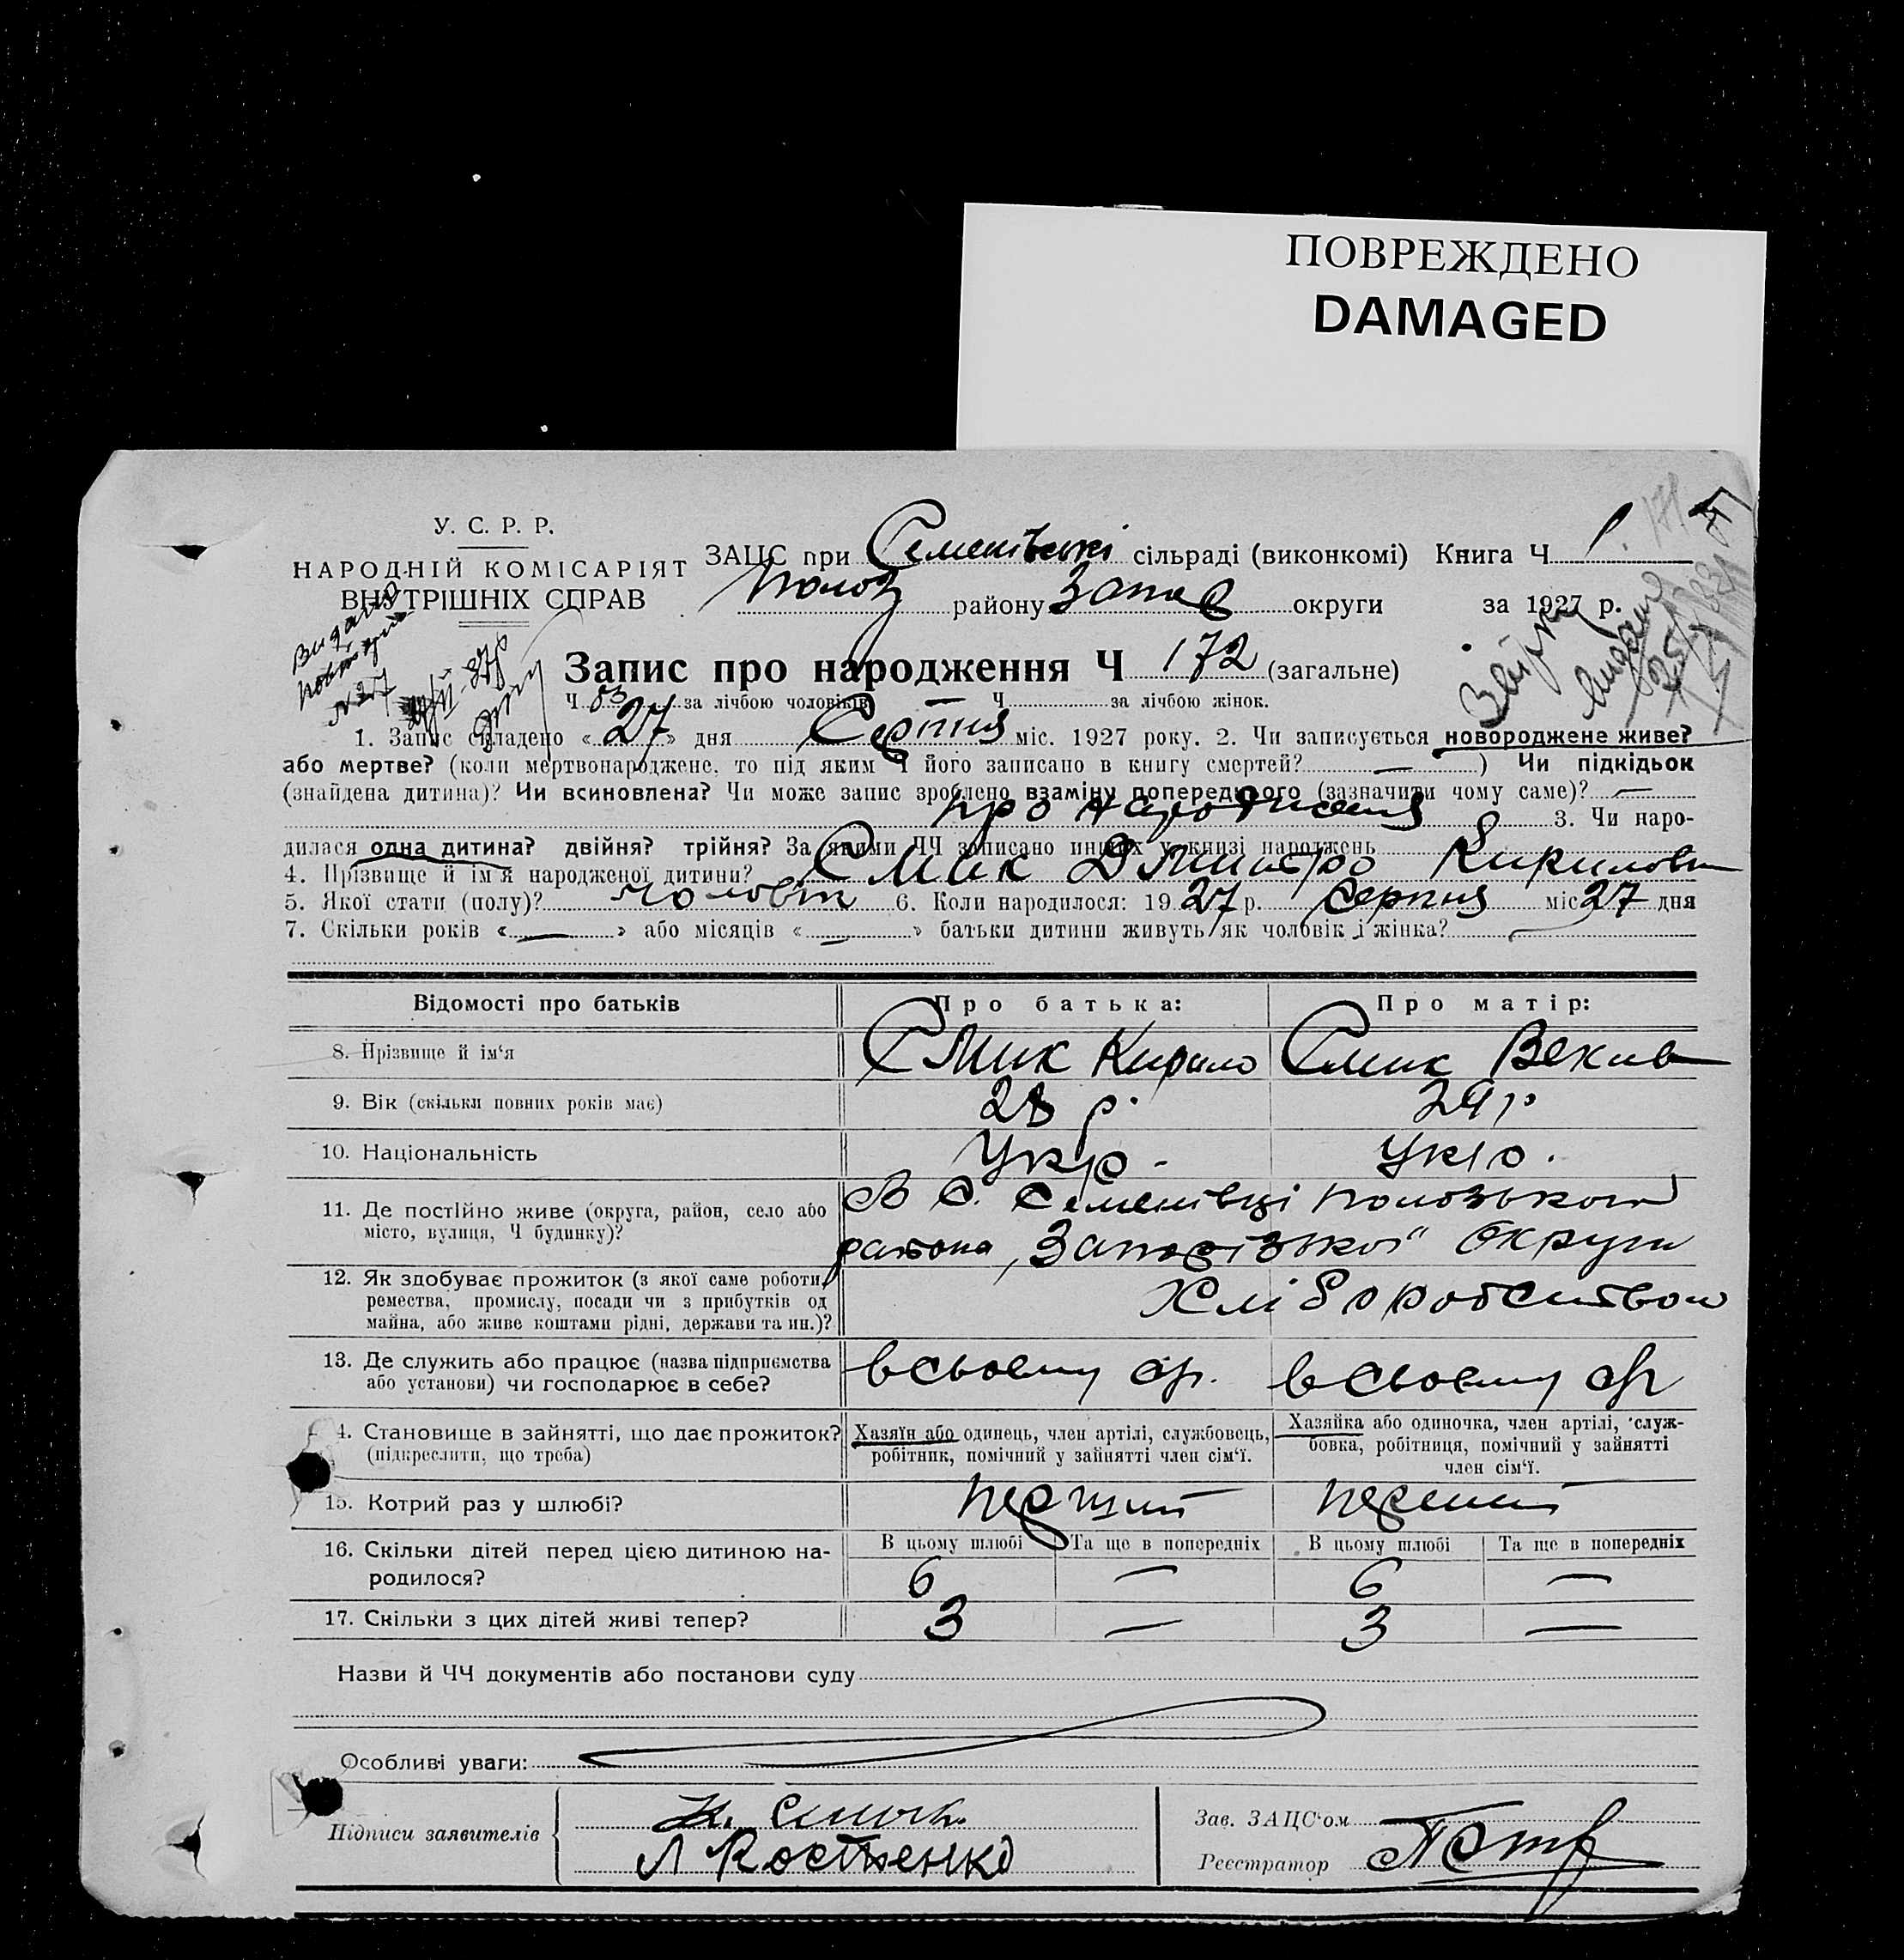 ПОВРЕЖДЕНО
DAMAGED
У. С. Р. Р.
НАРОДНІЙ КОМІСАРІЯТ
ВНУТРІШНІХ СПРАВ
ЗАЦС при Семенівські сільраді (виконкомі) Книга Ч 1.
Полог району Запор округи за 1927 р.
Видано
повторно
Запис про народження Ч 172 (загальне)
Ч 83 за лічбою чоловіків Ч — за лічбою жінок.
1. Запис складено «27» дня Серпня міс. 1927 року. 2. Чи записується новороджене живе?
або мертве? (коли мертвонароджене, то під яким Ч його записано в книгу смертей? — ) Чи підкідьок
(знайдена дитина)? Чи всиновлена? Чи може запис зроблено взаміну попереднього (зазначити чому саме)? —
про народження 3. Чи наро-
дилася одна дитина? двійня? трійня? За якими ЧЧ записано инших у книзі народжень
4. Прізвище й ім'я народженої дитини? Смик Дмитро Кирилов
5. Якої стати (полу)? чоловік 6. Коли народилося: 1927 р. Серпня міс 27 дня
7. Скільки років « — » або місяців « — » батьки дитини живуть як чоловік і жінка? —
Відомості про батьків Про батька: Про матір:
8. Прізвище й ім'я Смик Кирило Смик
9. Вік (скільки повних років має) 28 р. 29 р
10. Національність Укр. Укр.
11. Де постійно живе (округа, район, село або В с. Семенівці Полозького
місто, вулиця, Ч будинку)? района, Запорізької округи
12. Як здобуває прожиток (з якої саме роботи, Хліборобством
ремества, промислу, посади чи з прибутків од
майна, або живе коштами рідні, держави та ин.)?
13. Де служить або працює (назва підприємства в своему
або установи) чи господарює в себе? в своему
14. Становище в зайнятті, що дає прожиток? Хазяїн або одинець, член артілі, службовець, Хазяйка або одиночка, член артілі, служ-
(підкреслити, що треба) робітник, помічний у зайнятті член сім'ї. бовка, робітниця, помічний у зайнятті
член сім'ї.
15. Котрий раз у шлюбі? перший перший
16. Скільки дітей перед цією дитиною на- В цьому шлюбі Та ще в попередніх В цьому шлюбі Та ще в попередніх
родилося? 6 — 6 —
17. Скільки з цих дітей живі тепер? 3 — 3 —
Назви й ЧЧ документів або постанови суду
Особливі уваги:
Підписи заявителів
Л Костенко
Зав. ЗАЦС'ом
Реєстратор